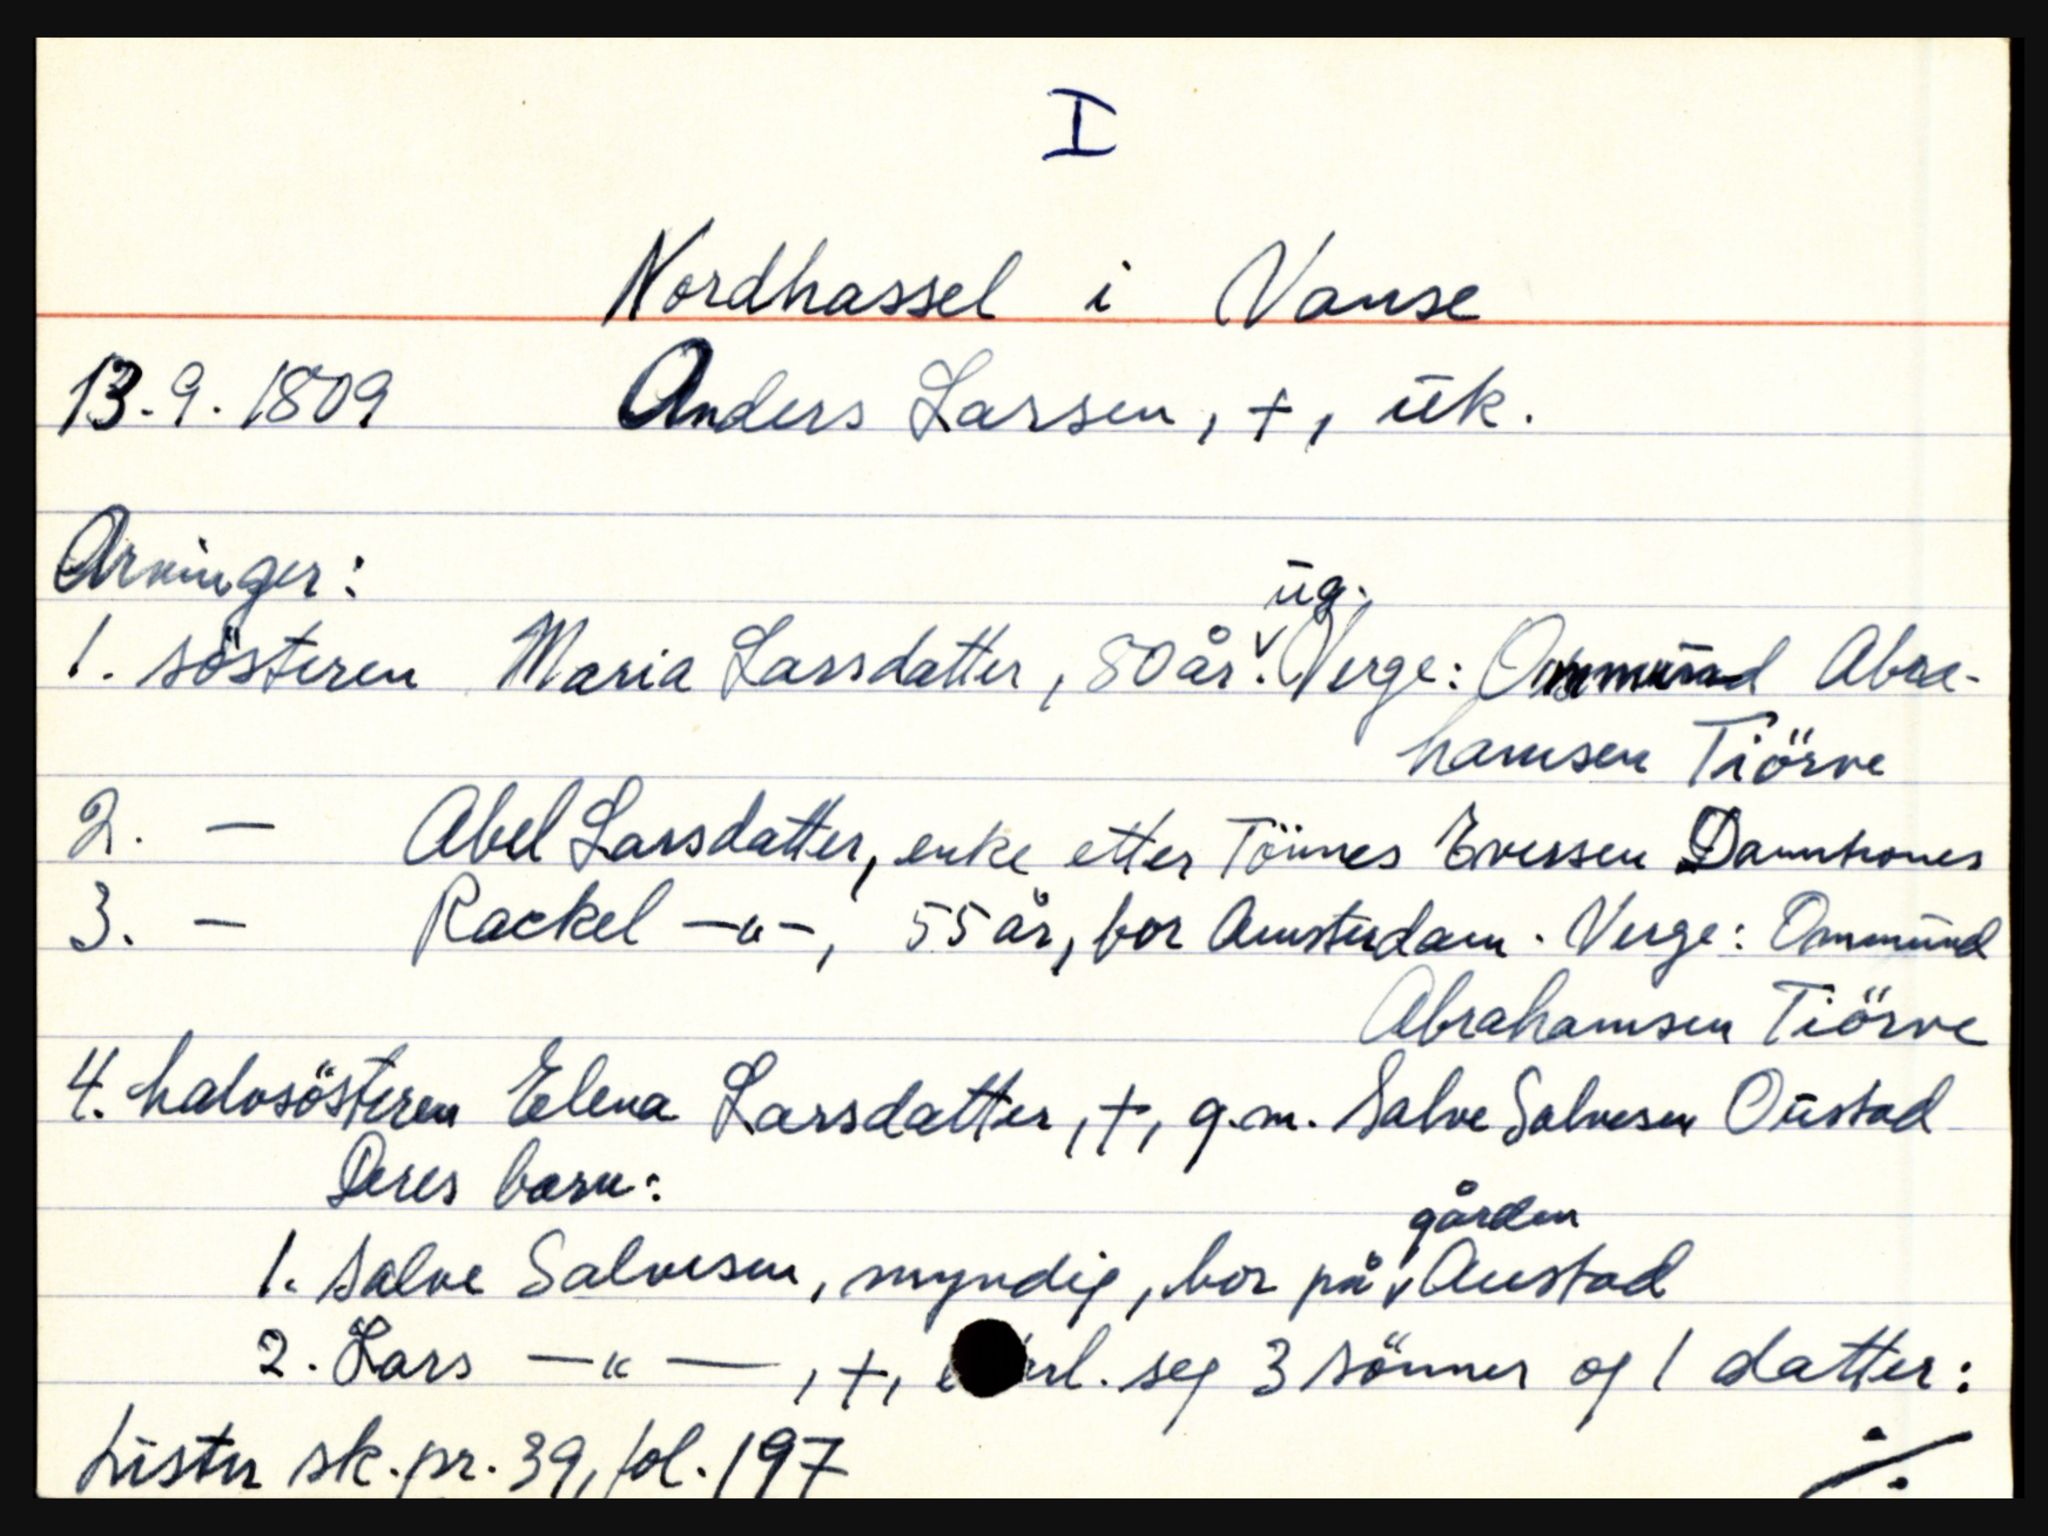 I
Nordhassel i Vanse
13.9.1809 Anders Larsen, +, ūk.
Arvinger:
ūg.
1. søsteren Maria Larsdatter, 80 år. Verge: Ommūnd Abra-
hamsen Tiörve
2. — Abel Larsdatter, enke etter Tönnes Eversen
3. — Rackel —"—, 55 år, bor Amsterdam. Verge: Ommūnd
Abrahamsen Tiörve
4. halvsösteren Elena Larsdatter, +, g.m. Salve Salvesen Oūstad
Deres barn:
gården
1. Salve Salvesen, myndig, bor på Austad
2. Lars —"—, +, seg 3 sönner og 1 datter:
Lister sk.pr. 39, fol. 197 ./.